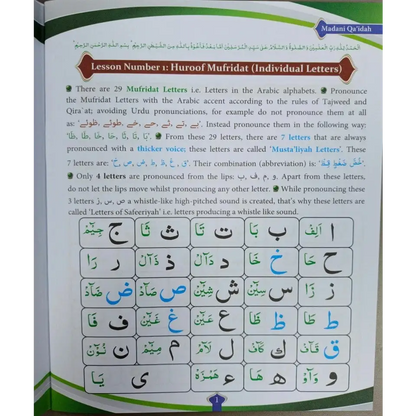 Madani Qa'idah
اَلْحَمْدُ لِلّٰهِ رَبِّ الْعٰلَمِيْنَ وَالصَّلٰوةُ وَالسَّلَامُ عَلٰى سَيِّدِ الْمُرْسَلِيْنَ اَمَّا بَعْدُ فَاَعُوْذُ بِاللّٰهِ مِنَ الشَّيْطٰنِ الرَّجِيْمِ ؕ بِسْمِ اللّٰهِ الرَّحْمٰنِ الرَّحِيْمِ ؕ
Lesson Number 1: Huroof Mufridat (Individual Letters)
There are 29 Mufridat Letters i.e. Letters in the Arabic alphabets. Pronounce
the Mufridat Letters with the Arabic accent according to the rules of Tajweed and
Qira`at; avoiding Urdu pronunciations, for example do not pronounce them at all
as: Instead pronounce them in the following way:
From these 29 letters, there are 7 letters that are always
pronounced with a thicker voice; these letters are called 'Musta'liyah Letters'. These
7 letters are: Their combination (abbreviation) is:
Only 4 letters are pronounced from the lips: ب, ف, م, و. Apart from these letters,
do not let the lips move whilst pronouncing any other letter. While pronouncing these
3 letters ز, س, ص a whistle-like high-pitched sound is created, that's why these letters are
called 'Letters of Safeeriyah' i.e. letters producing a whistle like sound.
ا اَلِفْ ب بَا ت تَا ث ثَا ج جِيْمْ
ح حَا خ خَا د دَالْ ذ ذَالْ ر رَا
ز زَا س سِيْنْ ش شِيْنْ ص صَادْ ض ضَادْ
ط طَا ظ ظَا ع عَيْنْ غ غَيْنْ ف فَا
ق قَافْ ك كَافْ ل لَامْ م مِيْمْ ن نُوْنْ
و وَاوْ ه هَا ء هَمْزَهْ ى يَا
1